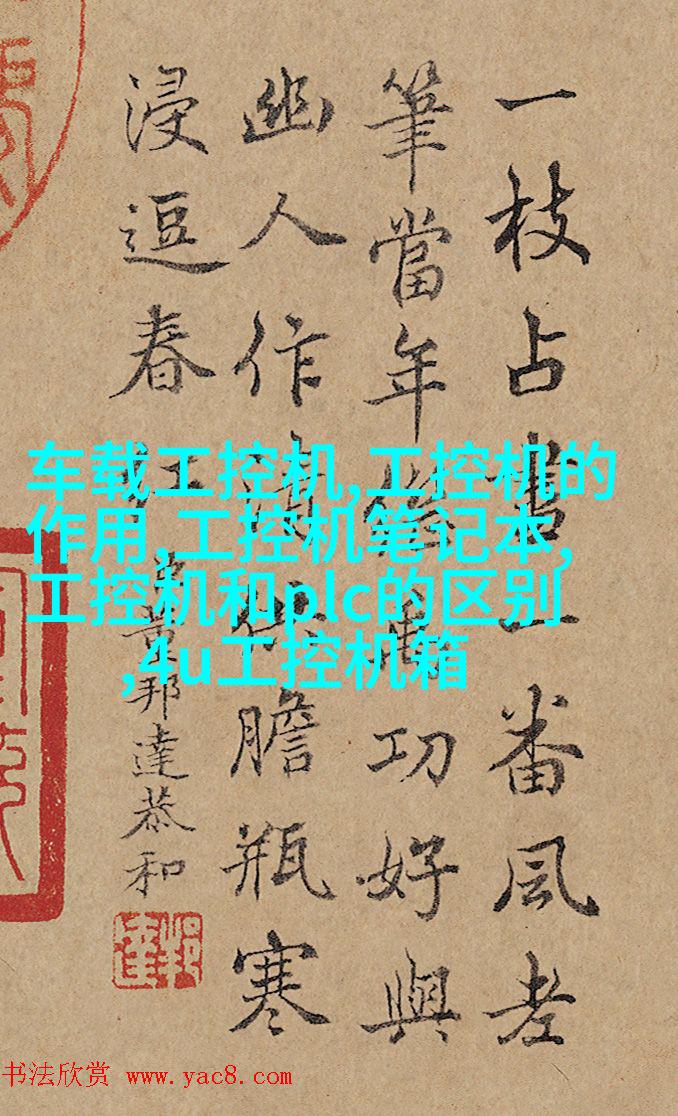 一枝占一番風老
筆當年功好與
幽人作清供膽瓶寒
浸逗春
董邦達恭和
车载工控机,工控机的
作用,工控机笔记本,
工控机和plc的区别
,4u工控机箱
书法欣赏 www.yac8.com